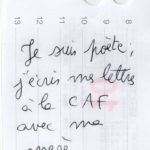 13 12 11 10 9 8
Je suis poète,
j'écris mes lettres
à la CAF
avec ma